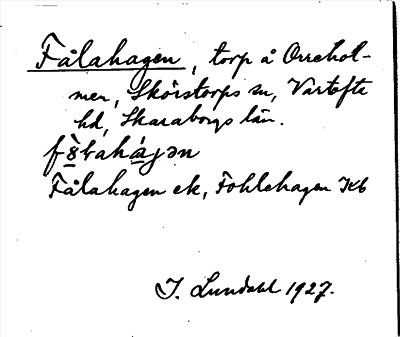 Fålahagen, torp å Orrehol-
men, Skörstorps sn, Vartofta
hd, Skaraborgs län.
Fålahagen ek, Fohlehagen Jkb
I. Lundahl 1927.